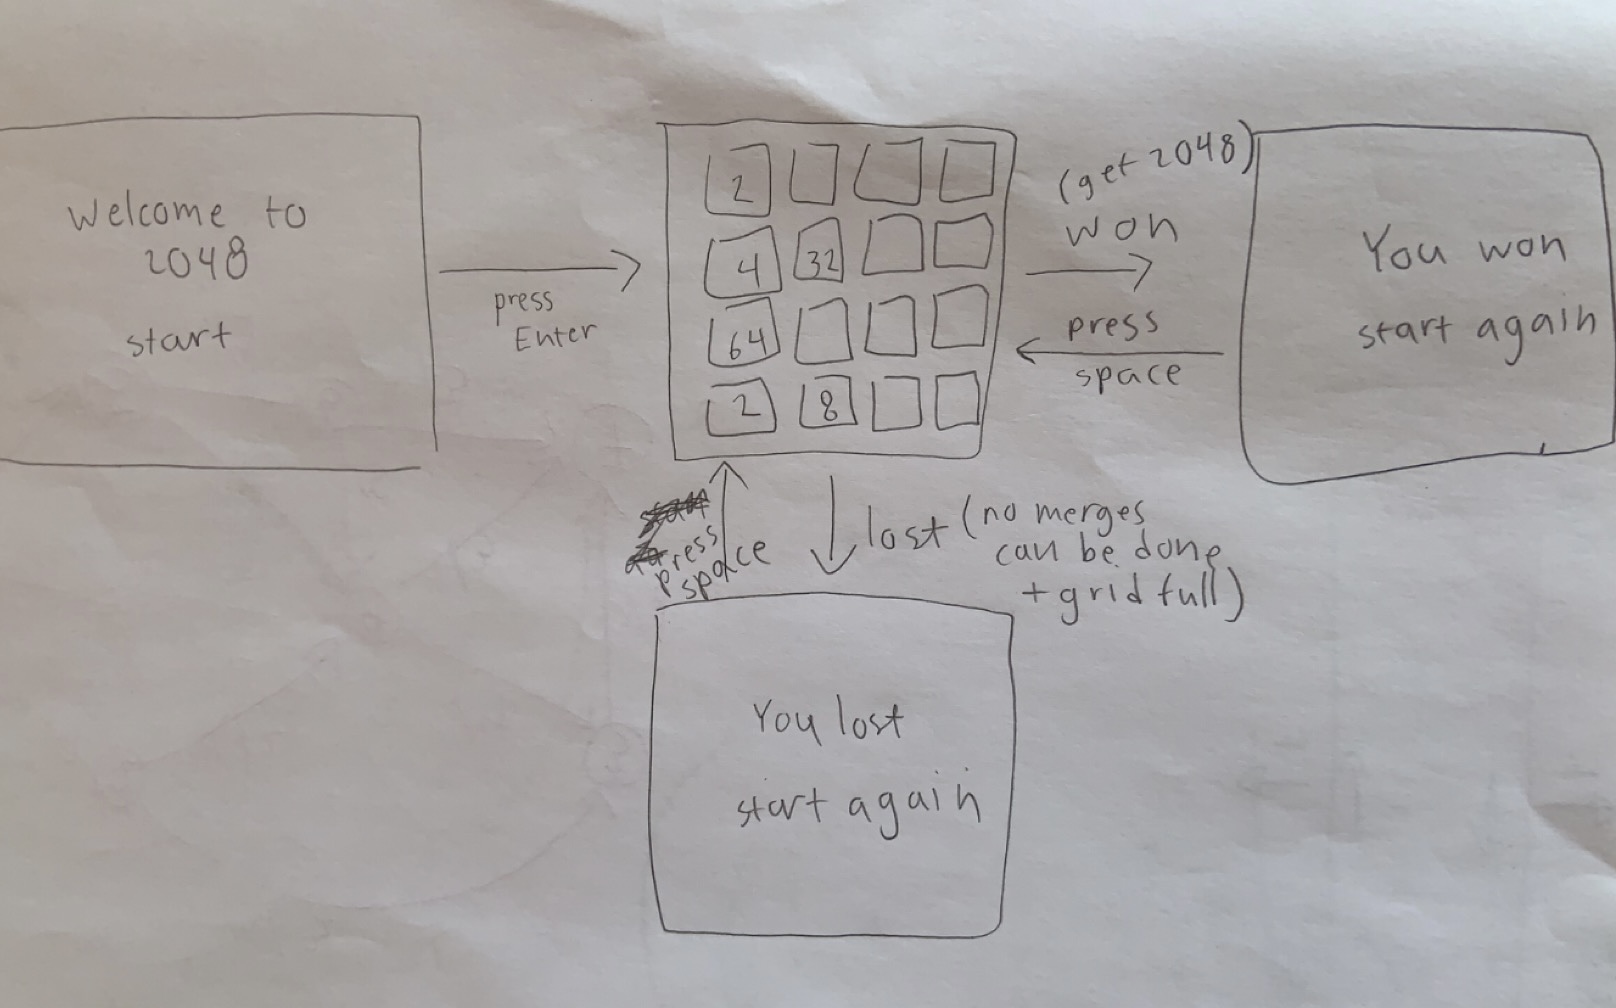 Welcome to
2048
start
press
Enter
2
4 32
64
2 8
(get 2048)
won
press
space
You won
start again
press
space
lost (no merges
can be done
+ grid full)
You lost
start again